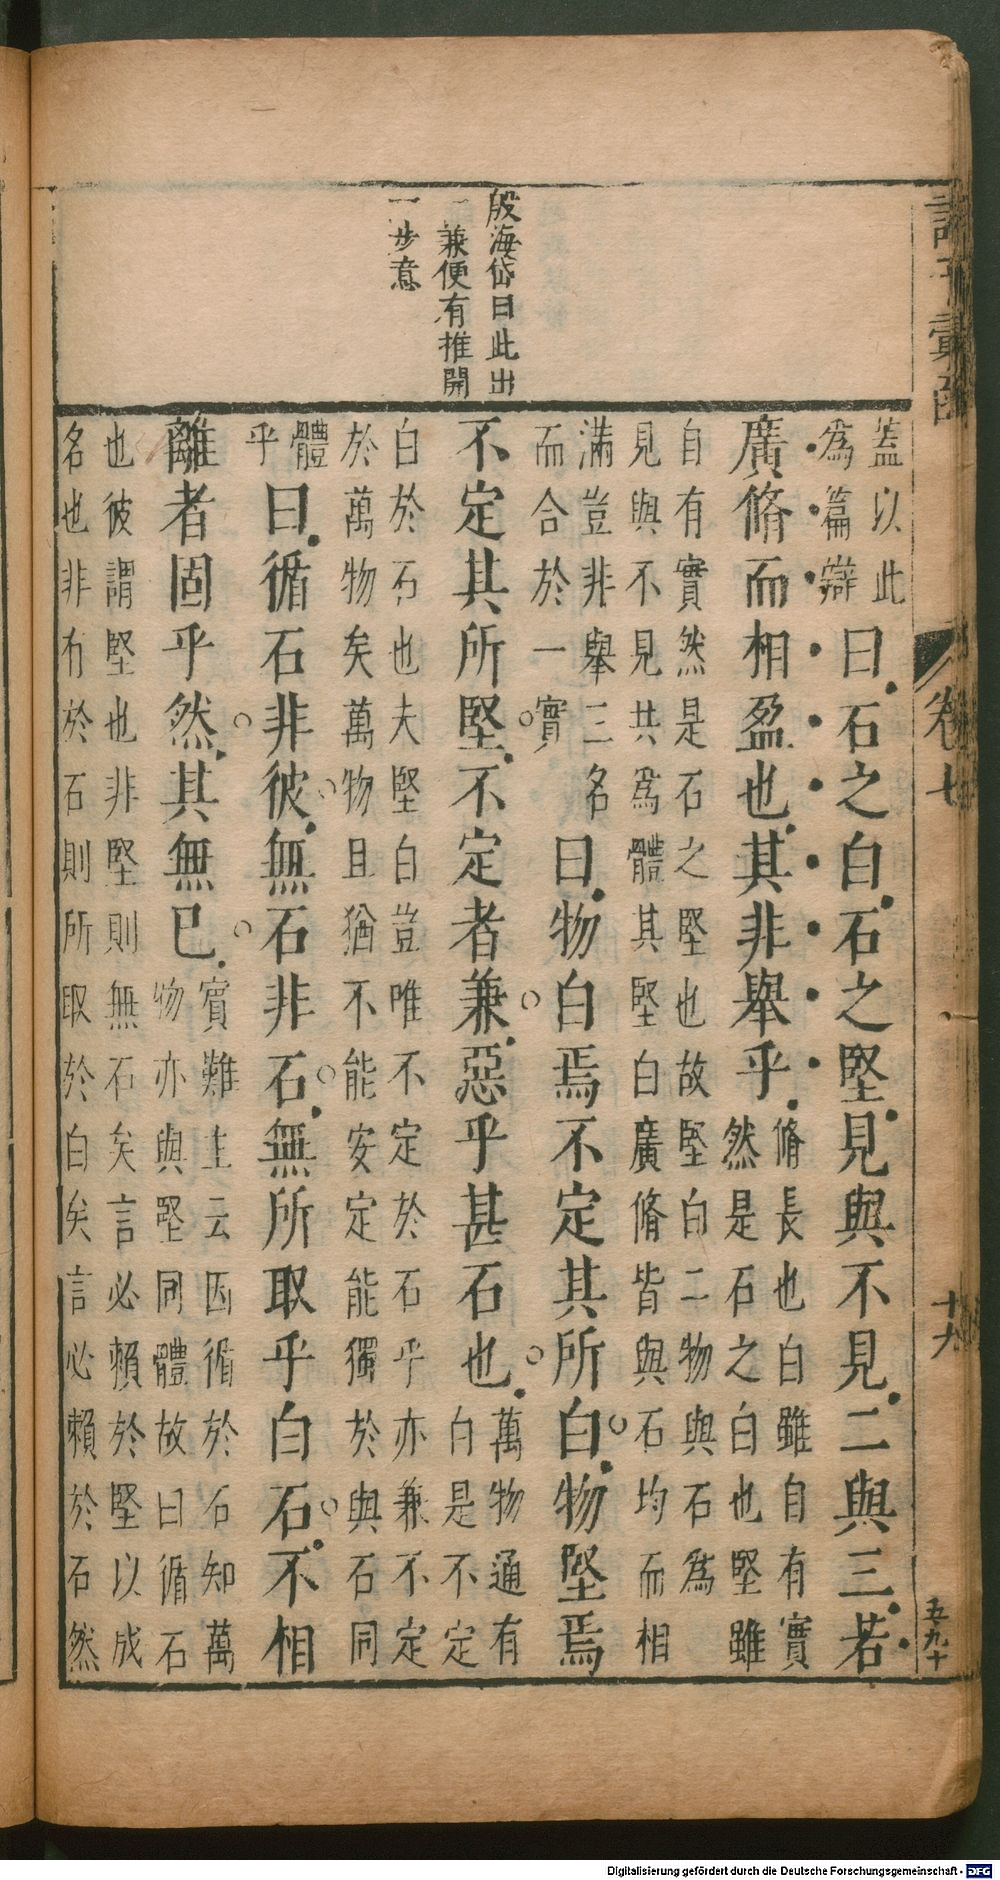 卷七
五九十
殷海岱曰此出
一兼便有推開
一步意
蓋以此
為篇辯
曰石之白石之堅見與不見二與三若
廣脩而相盈也其非舉乎
脩長也白雖自有實
然是石之白也堅雖
自有實然是石之堅也故堅白二物與石為
見與不見共為體其堅白廣脩皆與石均而相
滿豈非舉三名
而合於一實
曰物白焉不定其所白物堅焉
不定其所堅不定者兼惡乎甚石也
萬物通有
白是不定
白於石也夫堅白豈唯不定於石乎亦兼不定
於萬物矣萬物且猶不能安定能獨於與石同
體
乎
曰循石非彼無石非石無所取乎白石不相
離者固乎然其無已
賓難主云因循於石知萬
物亦與堅同體故曰循石
也彼謂堅也非堅則無石矣言必賴於堅以成
名也非有於石則所取於白矣言必賴於石然
Digitalisierung gefördert durch die Deutsche Forschungsgemeinschaft - DFG